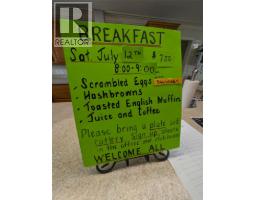 REALTOR
BREAKFAST
Sat. July 12TH $7.00
8:00-9:00
• Scrambled Eggs
• Hashbrowns
• Toasted English Muffin
• Juice and Coffee
Please bring a plate and
cutlery. Sign up sheets
in the office and clubhouse
WELCOME ALL